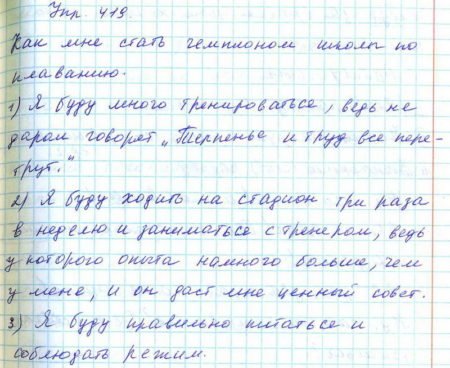 Упр. 419.
Как мне стать чемпионом школы по
плаванию.
1) Я буду много тренироваться, ведь не
даром говорят „Терпенье и труд все пере-
трут."
2) Я буду ходить на стадион три раза
в неделю и заниматься с тренером, ведь
у которого опыта намного больше, чем
у меня, и он даст мне ценный совет.
3) Я буду правильно питаться и
соблюдать режим.